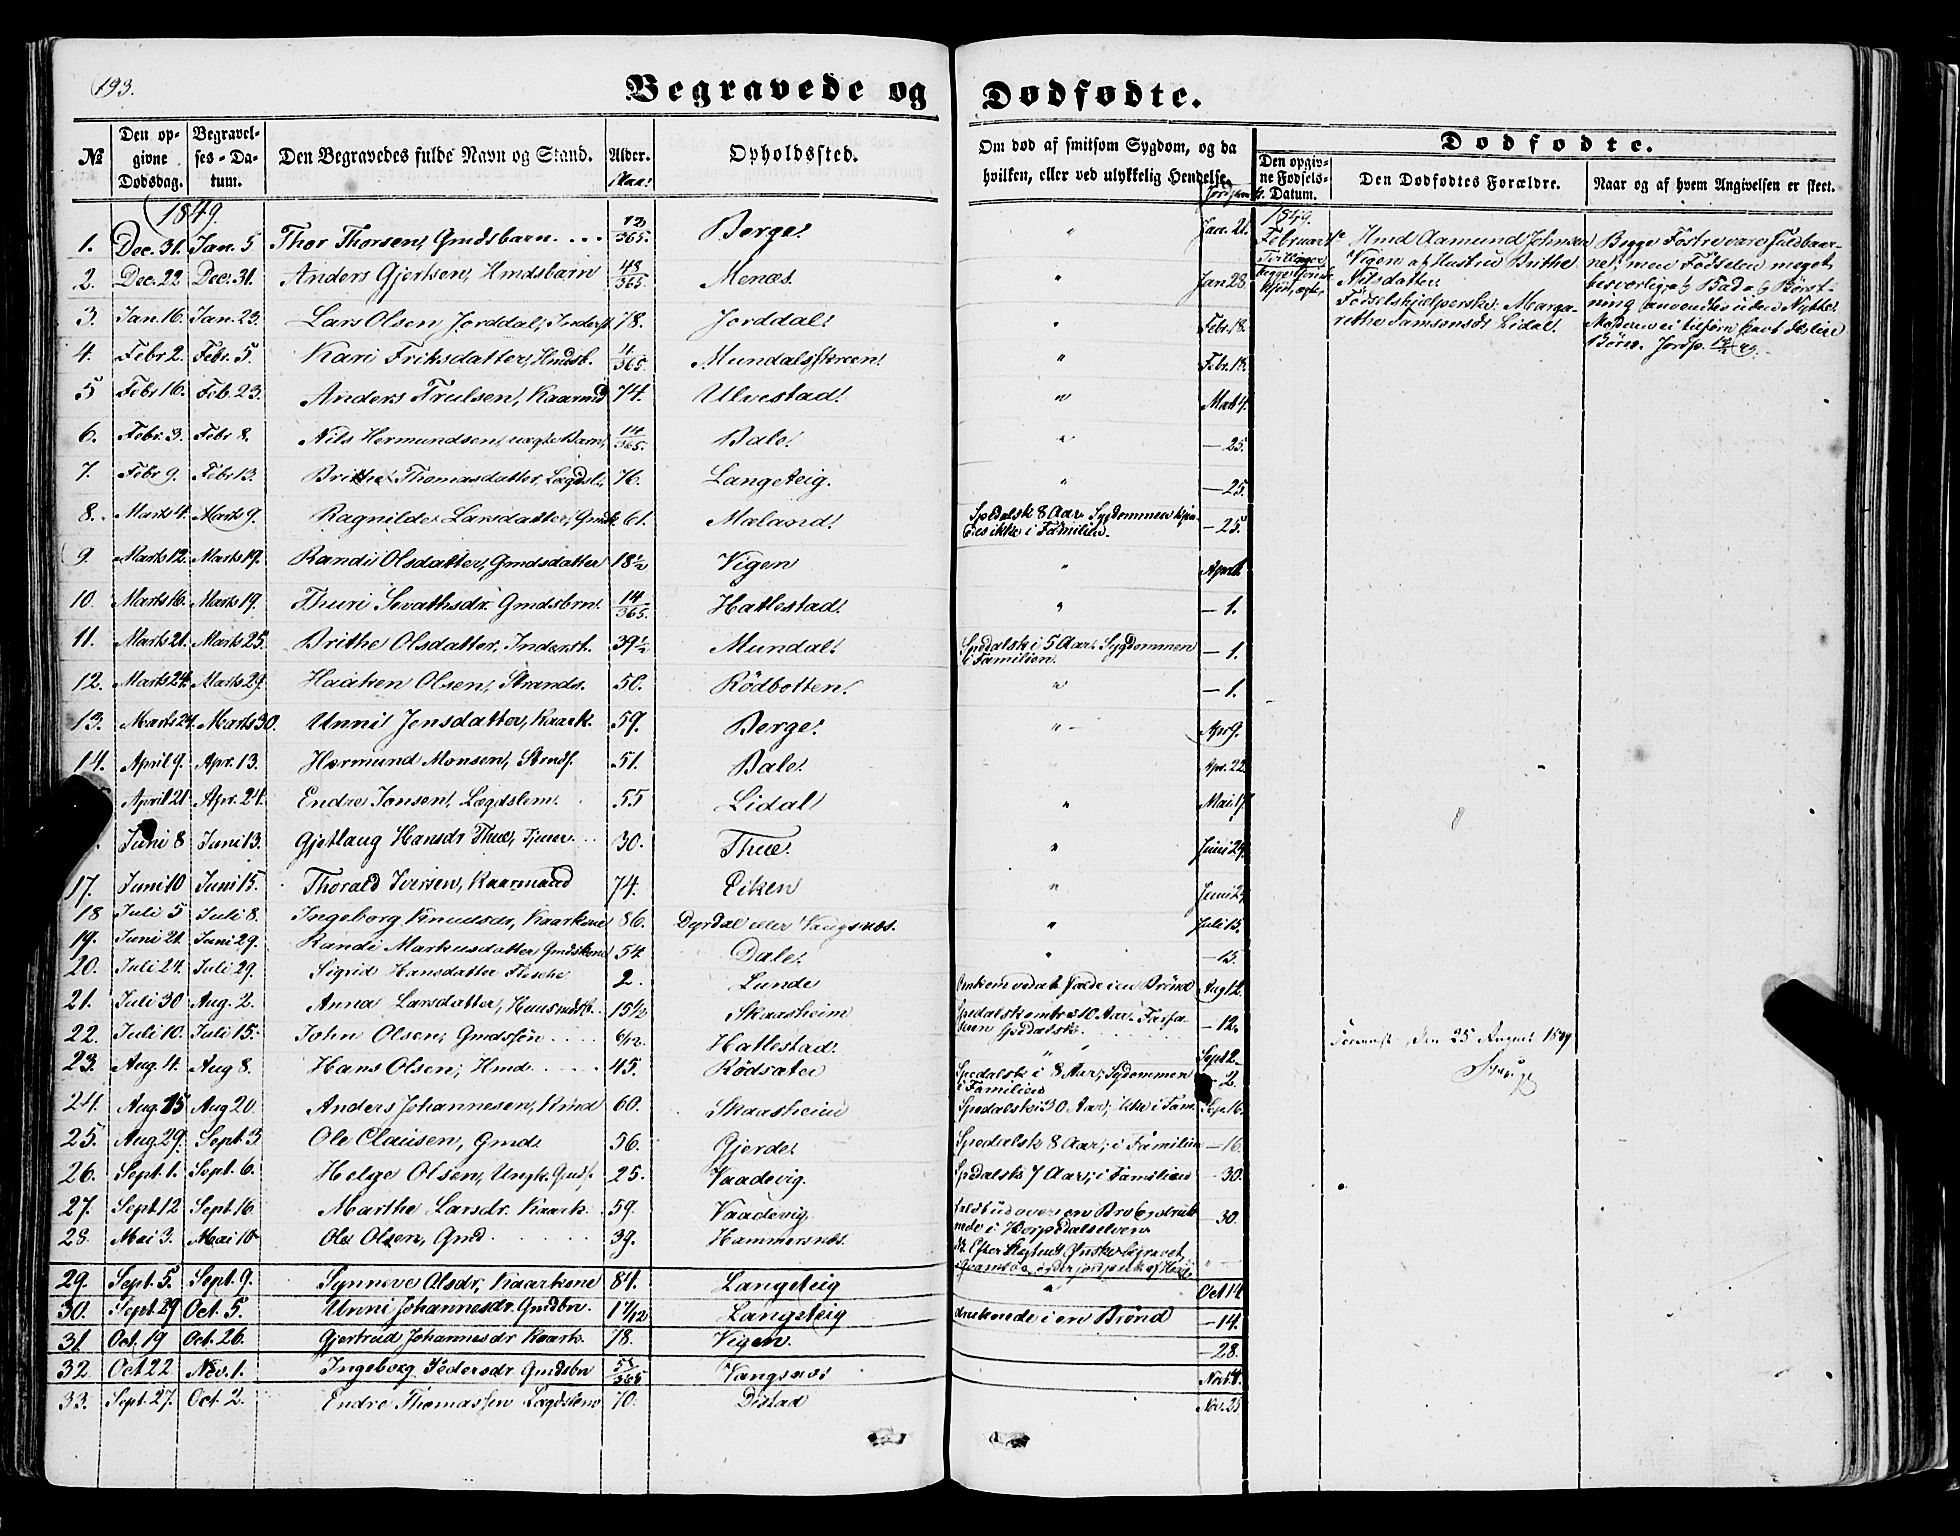 193.
Begravede og Dødfødte.
№ Den opgivne Dødsdag. Begravelses-Datum. Den Begravedes fulde Navn og Stand. Alder. Aar. Opholdssted. Om død af smitsom Sygdom, og da hvilken, eller ved ulykkelig Hendelse. Jordp.
Dødfødte.
Den opgivne Fødsels-Datum. Den Dødfødtes Forældre. Naar og af hvem Angivelsen er skeet.
1849.
1. Dec. 31. Jan. 5 Thor Thorsen, Gmdsbarn 12/365. Berge. " Jan. 21.
2. Dec. 22 Dec. 31. Anders Gjertsen, Hmdsbarn 43/365. Menæs. " Jan 28.
3. Jan. 16. Jan. 23. Lars Olsen Jorddal, Inderst 78. Jorddal. " Febr. 18.
4. Febr 2. Febr. 5. Kari Eriksdatter, Hmdsb. 4/365. Mundalsskreen. " Febr. 18.
5 Febr 16. Feb. 23. Anders Trulsen, Kaarmd 74. Ulvestad. " Mart 4.
6. Febr. 3. Febr 8. Nils Hermundsen, uægte Barn, 14/365. Bale. " — 25.
7. Febr 9. Febr 13. Brithe Thomasdatter, Lægdsl. 76. Langeteig. " — 25.
8. Marts 4. Marts 9. Ragnilde Larsdatter, Gmdsk. 61. Maland. Spedalsk 8 Aar. Sygdommen ikke i Familien. — 25.
9. Marts 12. Marts 19. Randi Olsdatter, Gmdsdatter 18½ Vigen " Apr. 1.
10. Marts 16. Marts 19. Thuri Sevathsdr. Gmdsbrn. 14/365. Hatlestad. " — 1.
11. Marts 21. Marts 25. Brithe Olsdatter, Inderst. 39½ Mundal. Spedalsk i 5 Aar. Sygdommen i Familien. — 1.
12. Marts 24. Marts 29. Haaken Olsen, Strands. 50. Rödbotten. " — 1.
13. Marts 24. Marts 30. Unni Jensdatter, Kaark. 59. Berge. " — Apr 9.
14. April 9. Apr. 13. Hermund Monsen, Strnds. 51. Bale. Apr. 22
April 21. Apr. 24. Endre Jonsen, Lægdslem. 55 Lidal. " Mai 17.
Juni 8 Juni 13. Gjetlaug Hansdr Thue, Tjener 30. Thue. " Juni 24.
17. Juni 10 Juni 15. Thorald Iversen, Kaarmand 74. Eiken " Juni 24.
18 Juli 5 Juli 8. Ingeborg Knudsdr, Kaarkone 86. Dyrdal eller Vangsnæs. " Juli 15.
19. Juni 21. Juni 29. Randi Markusdatter Gmdskone 54 Dale. " — 15.
20. Juli 24. Juli 29. Sigrid Hansdatter Flesche 2. Lunde Omkom ved at falde i en Brönd Aug 12.
21. Juli 30 Aug. 2. Anna Larsdatter, Huusmdsk. 15½ Skaasheim Spedalsk omtr 10 Aar. Farfaderen Spedalsk. — 12.
22. Juli 10. Juli 15. John Olsen, Gmdssön 6/12. Hatlestad. " " Sept 2.
23. Aug. 4. Aug 8. Hans Olsen, Hmd. 45. Rödsæter Spedalsk i 8 Aar, Sygdommen i Familien — 2.
24. Aug. 15 Aug 20. Anders Johannesen, Kmd 60. Skaasheim Spedalsk i 30 Aar, ikke i Fam. Sep. 16.
25. Aug. 29. Sept. 3 Ole Clausen, Gmd. 56. Gjerde. Spedalsk 8 Aar, i Familien — 16.
26. Sept. 1. Sept. 6. Helge Olsen, Ungk. Gmds. 25. Vaadevig. Spedalsk 7 Aar, i Familien — 30.
27. Sept. 12 Sept. 16 Marthe Larsdr. Kaark. 59. Vaadevig. Faldt ud over en Bro &amp; druknede i Hopsdalselven — 30.
28. Mai 3. Mai 10. Ole Olsen, Gmd 39. Hammersnæs.
29. Sept. 5. Sept. 9. Synneve Olsdr, Kaarkone 84. Langeteig " Oct 14
30. Sept. 29 Oct. 5. Unni Johannesdr. Gmdbn. 1 7/12 Langeteig druknede i en Brönd — 14.
31. Oct. 19 Oct. 26. Gjertrud Johannesdr Kaark. 78. Vigen. — 28.
32 Oct 22 Nov. 1. Ingeborg Pedersdr. Gmdsbn 57/365 Vangsnæs Nov. 4.
33. Sept. 27. Oct. 2. Endre Thomassen Lægdslem 70. Distad Nov. 25
1849.
Februar
Tvillinger
Hmd Aamund Johnsen
Vigen og Hustru Brithe
Nilsdatter.
Födselshjelperske. Margarethe Samsonsdr Lidal.
Begge Fostre vare fuldbaarne, men Födselen meget
besværlig, og Bad og Börstning anvendtes uden Nytte.
Börn. Jordp.
den 25 August 1849